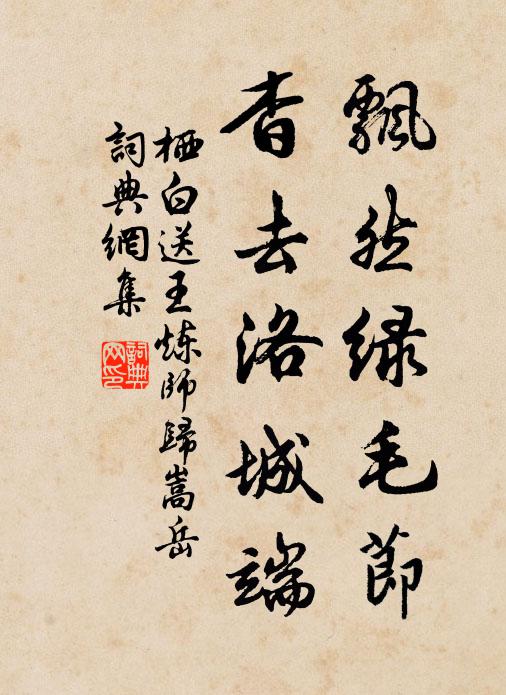 飄然绿毛節
杳去洛城端
栖白送王炼师歸嵩岳
詞典網集
詞典網印